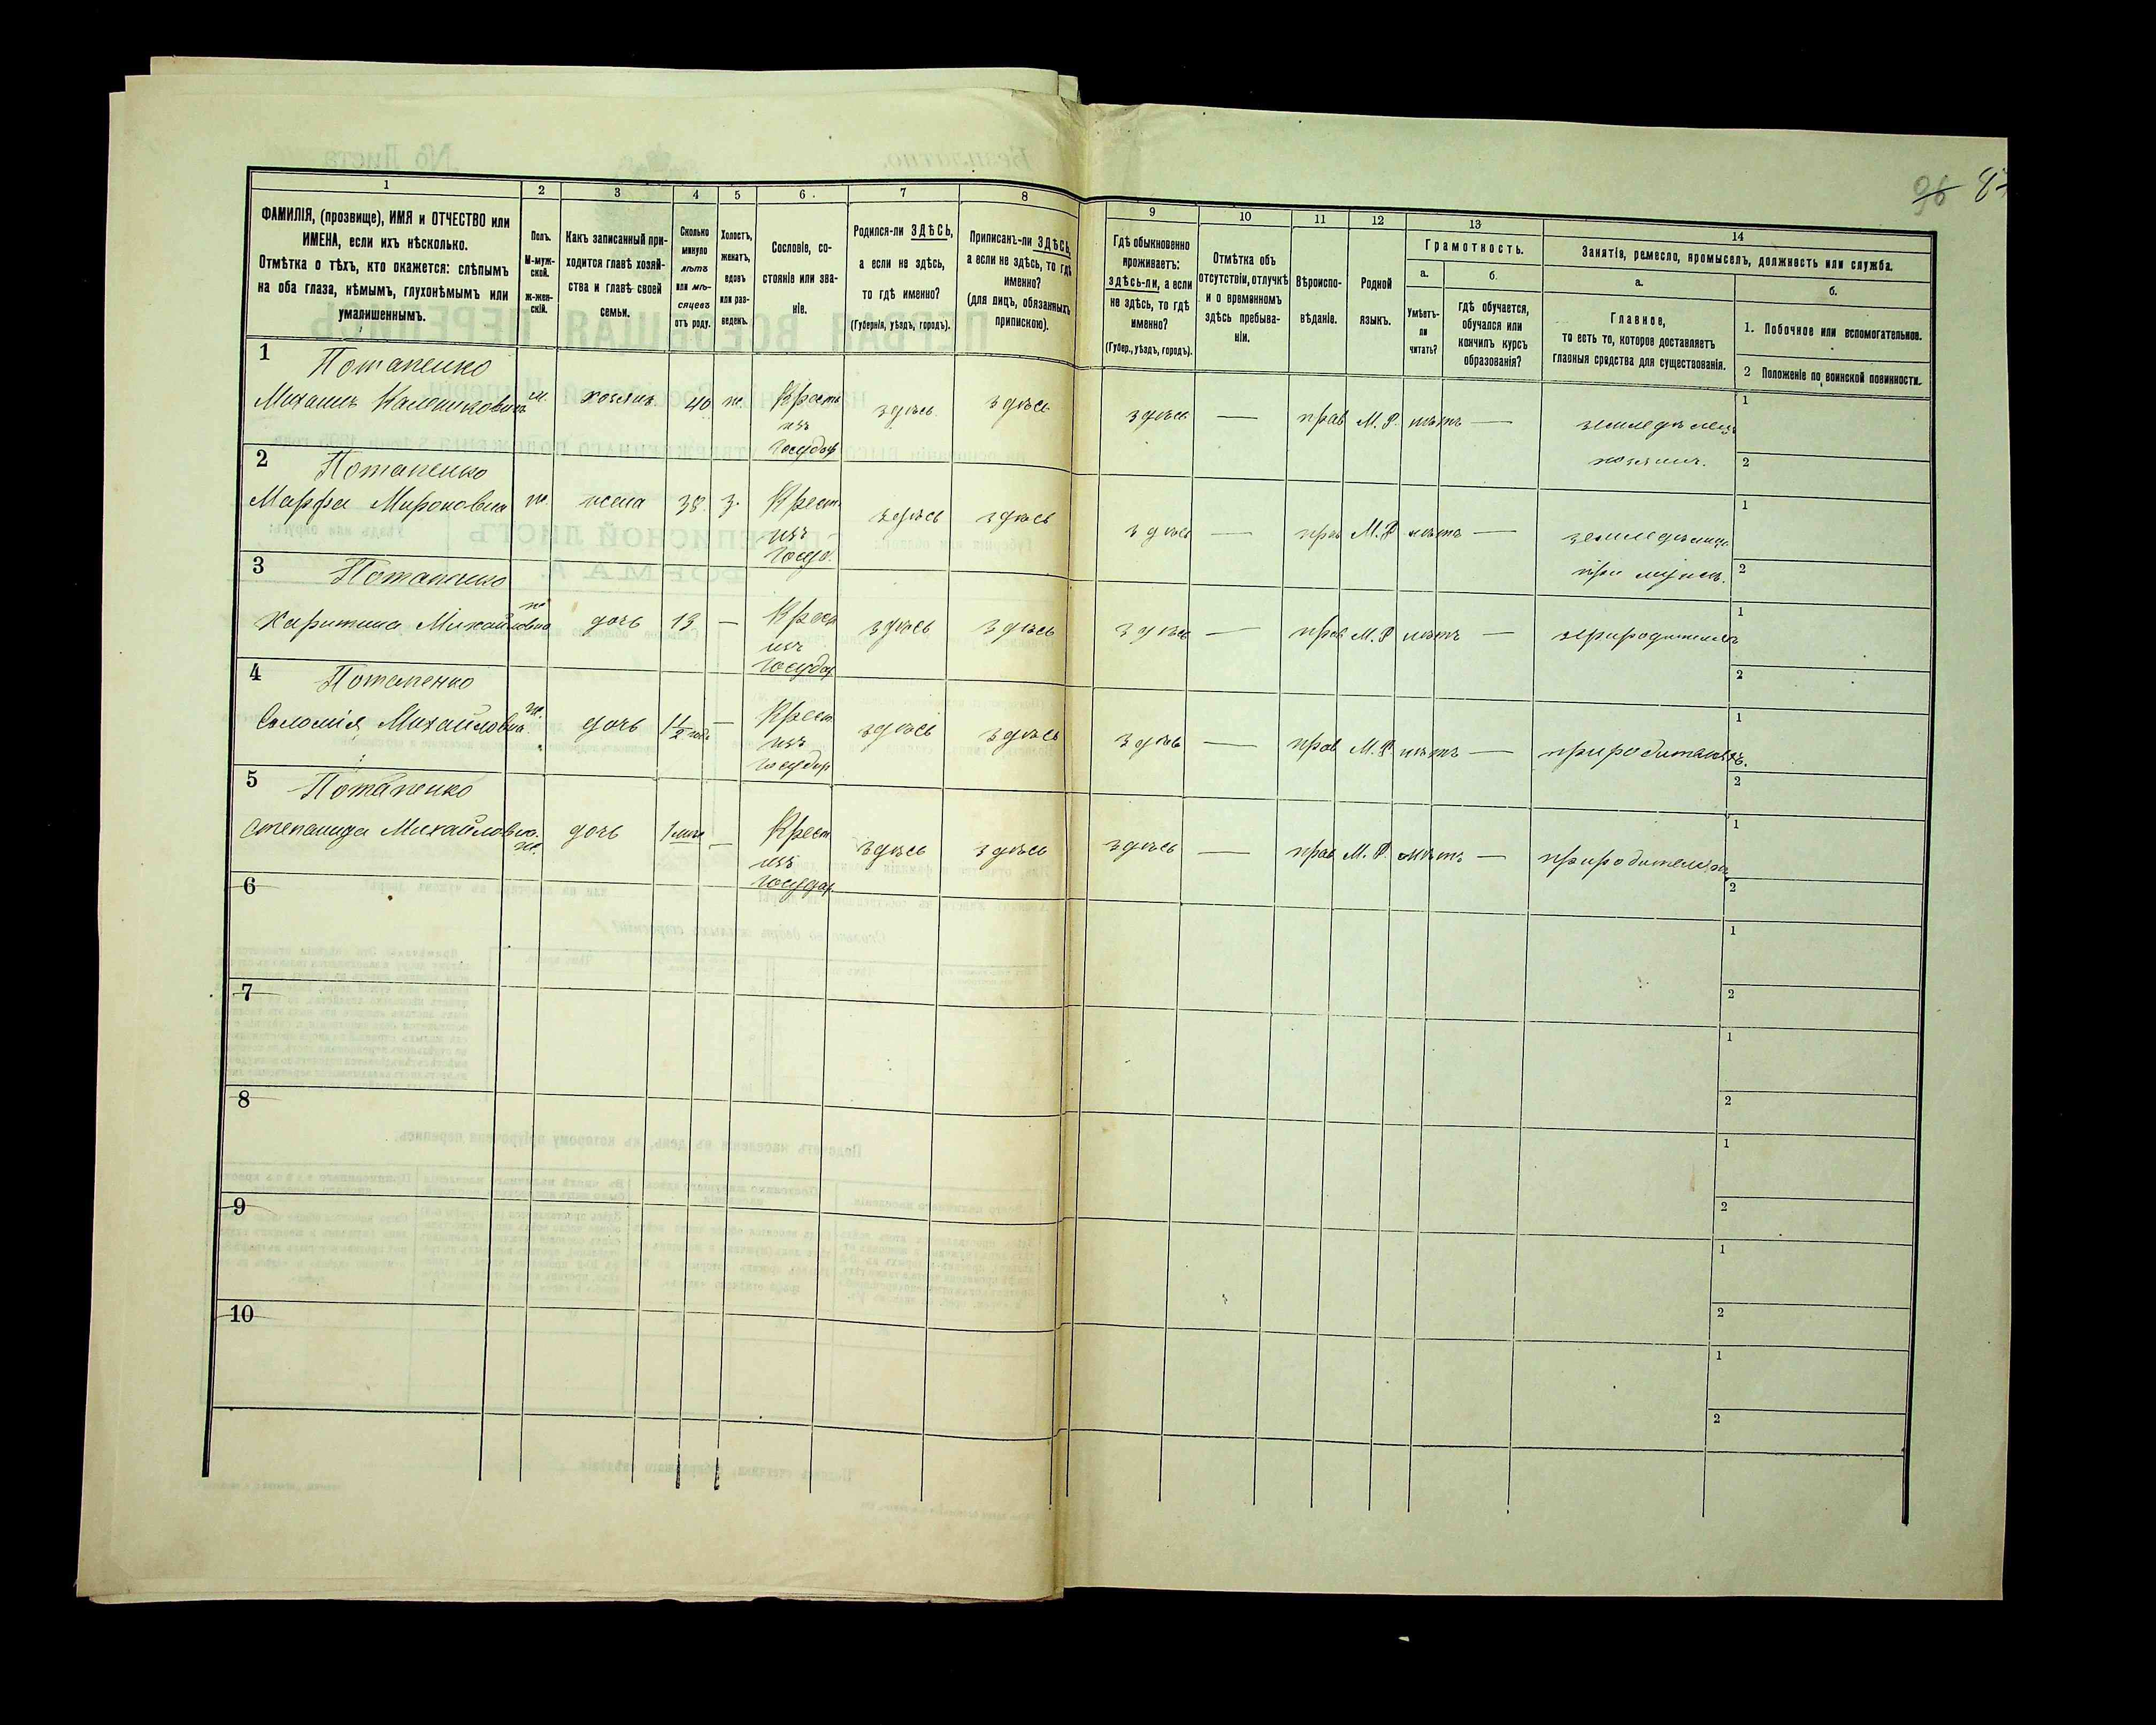 96 87
1 2 3 4 5 6 7 8 9 10 11 12 13 14
ФАМИЛІЯ, (прозвище), ИМЯ и ОТЧЕСТВО или
ИМЕНА, если ихъ нѣсколько.
Отмѣтка о тѣхъ, кто окажется: слѣпымъ
на оба глаза, нѣмымъ, глухонѣмымъ или
умалишеннымъ.
Полъ.
М-муж-
ской.
Ж-жен-
скій.
Какъ записанный при-
ходится главѣ хозяй-
ства и главѣ своей
семьи.
Сколько
минуло
лѣтъ
или мѣ-
сяцевъ
отъ роду.
Холостъ,
женатъ,
вдовъ
или раз-
веденъ.
Сословіе, со-
стояніе или зва-
ніе.
Родился-ли ЗДѢСЬ,
а если не здѣсь,
то гдѣ именно?
(Губернія, уѣздъ, городъ).
Приписанъ-ли ЗДѢСЬ,
а если не здѣсь, то гдѣ
именно?
(для лицъ, обязанныхъ
припискою).
Гдѣ обыкновенно
проживаетъ:
здѣсь-ли, а если
не здѣсь, то гдѣ
именно?
(Губер., уѣздъ, городъ).
Отмѣтка объ
отсутствіи, отлучкѣ
и о временномъ
здѣсь пребыва-
ніи.
Вѣроиспо-
вѣданіе.
Родной
языкъ.
Грамотность.
а.
Умѣетъ-
ли
читать?
б.
гдѣ обучается,
обучался или
кончилъ курсъ
образованія?
Занятіе, ремесло, промыселъ, должность или служба.
а.
Главное,
то есть то, которое доставляетъ
главныя средства для существованія.
б.
1. Побочное или вспомогательное.
2 Положеніе по воинской повинности.
1 Потапенко
Михаилъ Калениковичъ м. хозяинъ 40 ж. Крестъ здѣсь здѣсь здѣсь — прав М. Р. нѣтъ — земледѣлецъ 1
изъ
Государ хозяинъ. 2
2 Потапенко
Марфа Мироновна ж. жена 38. з. Крест. здѣсь здѣсь здѣсь — прав М. Р нѣтъ — 1
изъ
Госуд. при мужѣ. 2
3 Потапенко
Харитина Михайловна ж дочь 13 — Крест здѣсь здѣсь здѣсь — прав М. Р нѣтъ — 1
изъ
Государ 2
4 Потапенко
Соломія Михайловна ж. дочь 1 1/2 года — Крест здѣсь здѣсь здѣсь — прав М. Р. нѣтъ — при родителяхъ. 1
изъ
Государ 2
5 Потапенко
Степанида Михайловна. ж. дочь — Крест здѣсь здѣсь здѣсь — прав М. Р. нѣтъ — при родителяхъ 1
изъ
Государ. 2
6 1
2
7 1
2
8 1
2
9 1
2
10 1
2